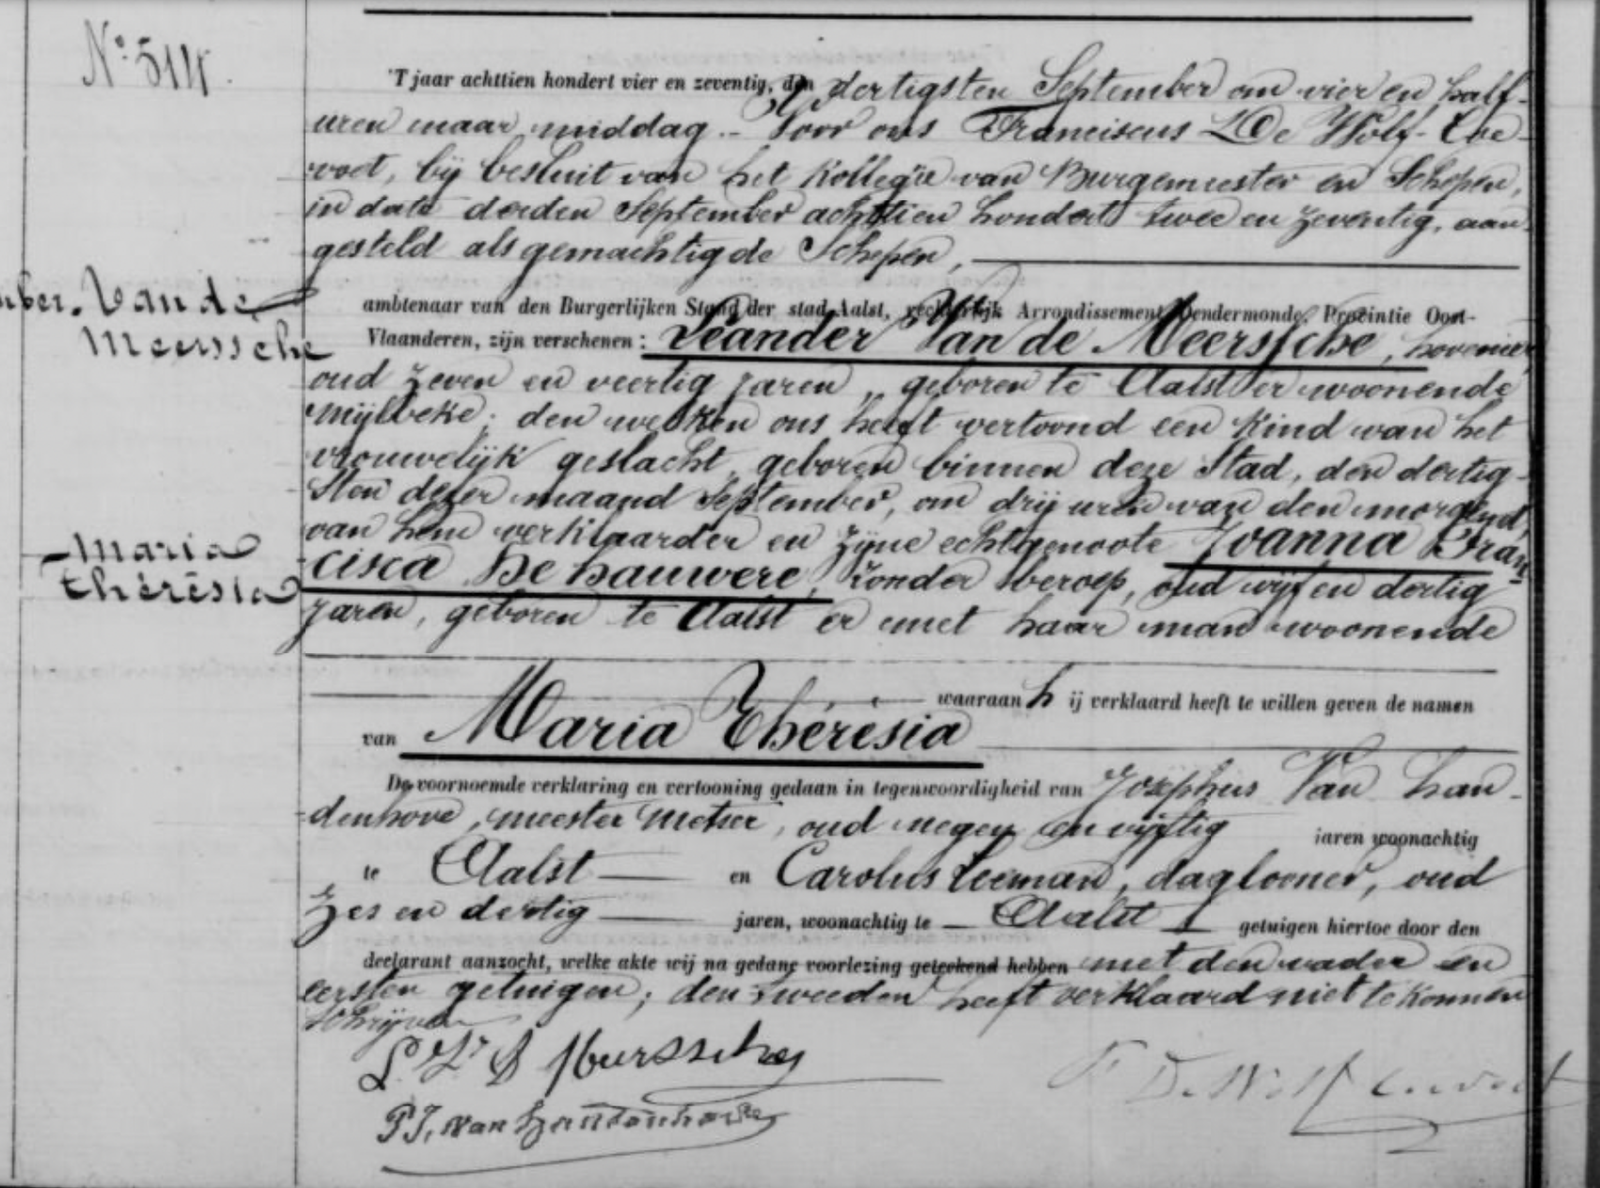 N.° 514.
'T jaar achttien hondert vier en zeventig, den dertigsten September om vier en half
uren naar middag. Voor ons Franciscus De Wolf-Coe-
voet, bij besluit van het Kollegie van Burgemeester en Schepen,
in data derden September achttien hondert twee en zeventig, aan-
gesteld als gemachtigde Schepen,
ambtenaar van den Burgerlijken Stand der stad Aalst, rechterlijk Arrondissement Dendermonde, Provintie Oost-
Vlaanderen, zijn verschenen: Leander Van de Meerssche, hovenier,
Van de
Meerssche
oud zeven en veertig jaren, geboren te Aalst er woonende
Mijlbeke; den welken ons heeft vertoond een kind van het
vrouwelijk geslacht, geboren binnen deze Stad, den dertig-
sten dezer maand September, om drij uren van den morgend,
van hem verklaarder en zijne echtgenoote Joanna Fran-
cisca De hauwere, zonder beroep, oud vijf en dertig
Maria
Thérésia
jaren, geboren te Aalst er met haar man woonende
waaraan hij verklaard heeft te willen geven de namen
van Maria Thérésia
De voornoemde verklaring en vertooning gedaan in tegenwoordigheid van Josephus Van han-
denhove, meester metser, oud negen en vijftig jaren woonachtig
te Aalst en Carolus Leeman, daglooner, oud
zes en dertig jaren, woonachtig te Aalst getuigen hiertoe door den
declarant aanzocht, welke akte wij na gedane voorlezing geteekend hebben met den vader en
eersten getuigen; den tweeden heeft verklaard niet te konnen
schrijven
P. J. Van Handenhove
F De Wolf Coevoet